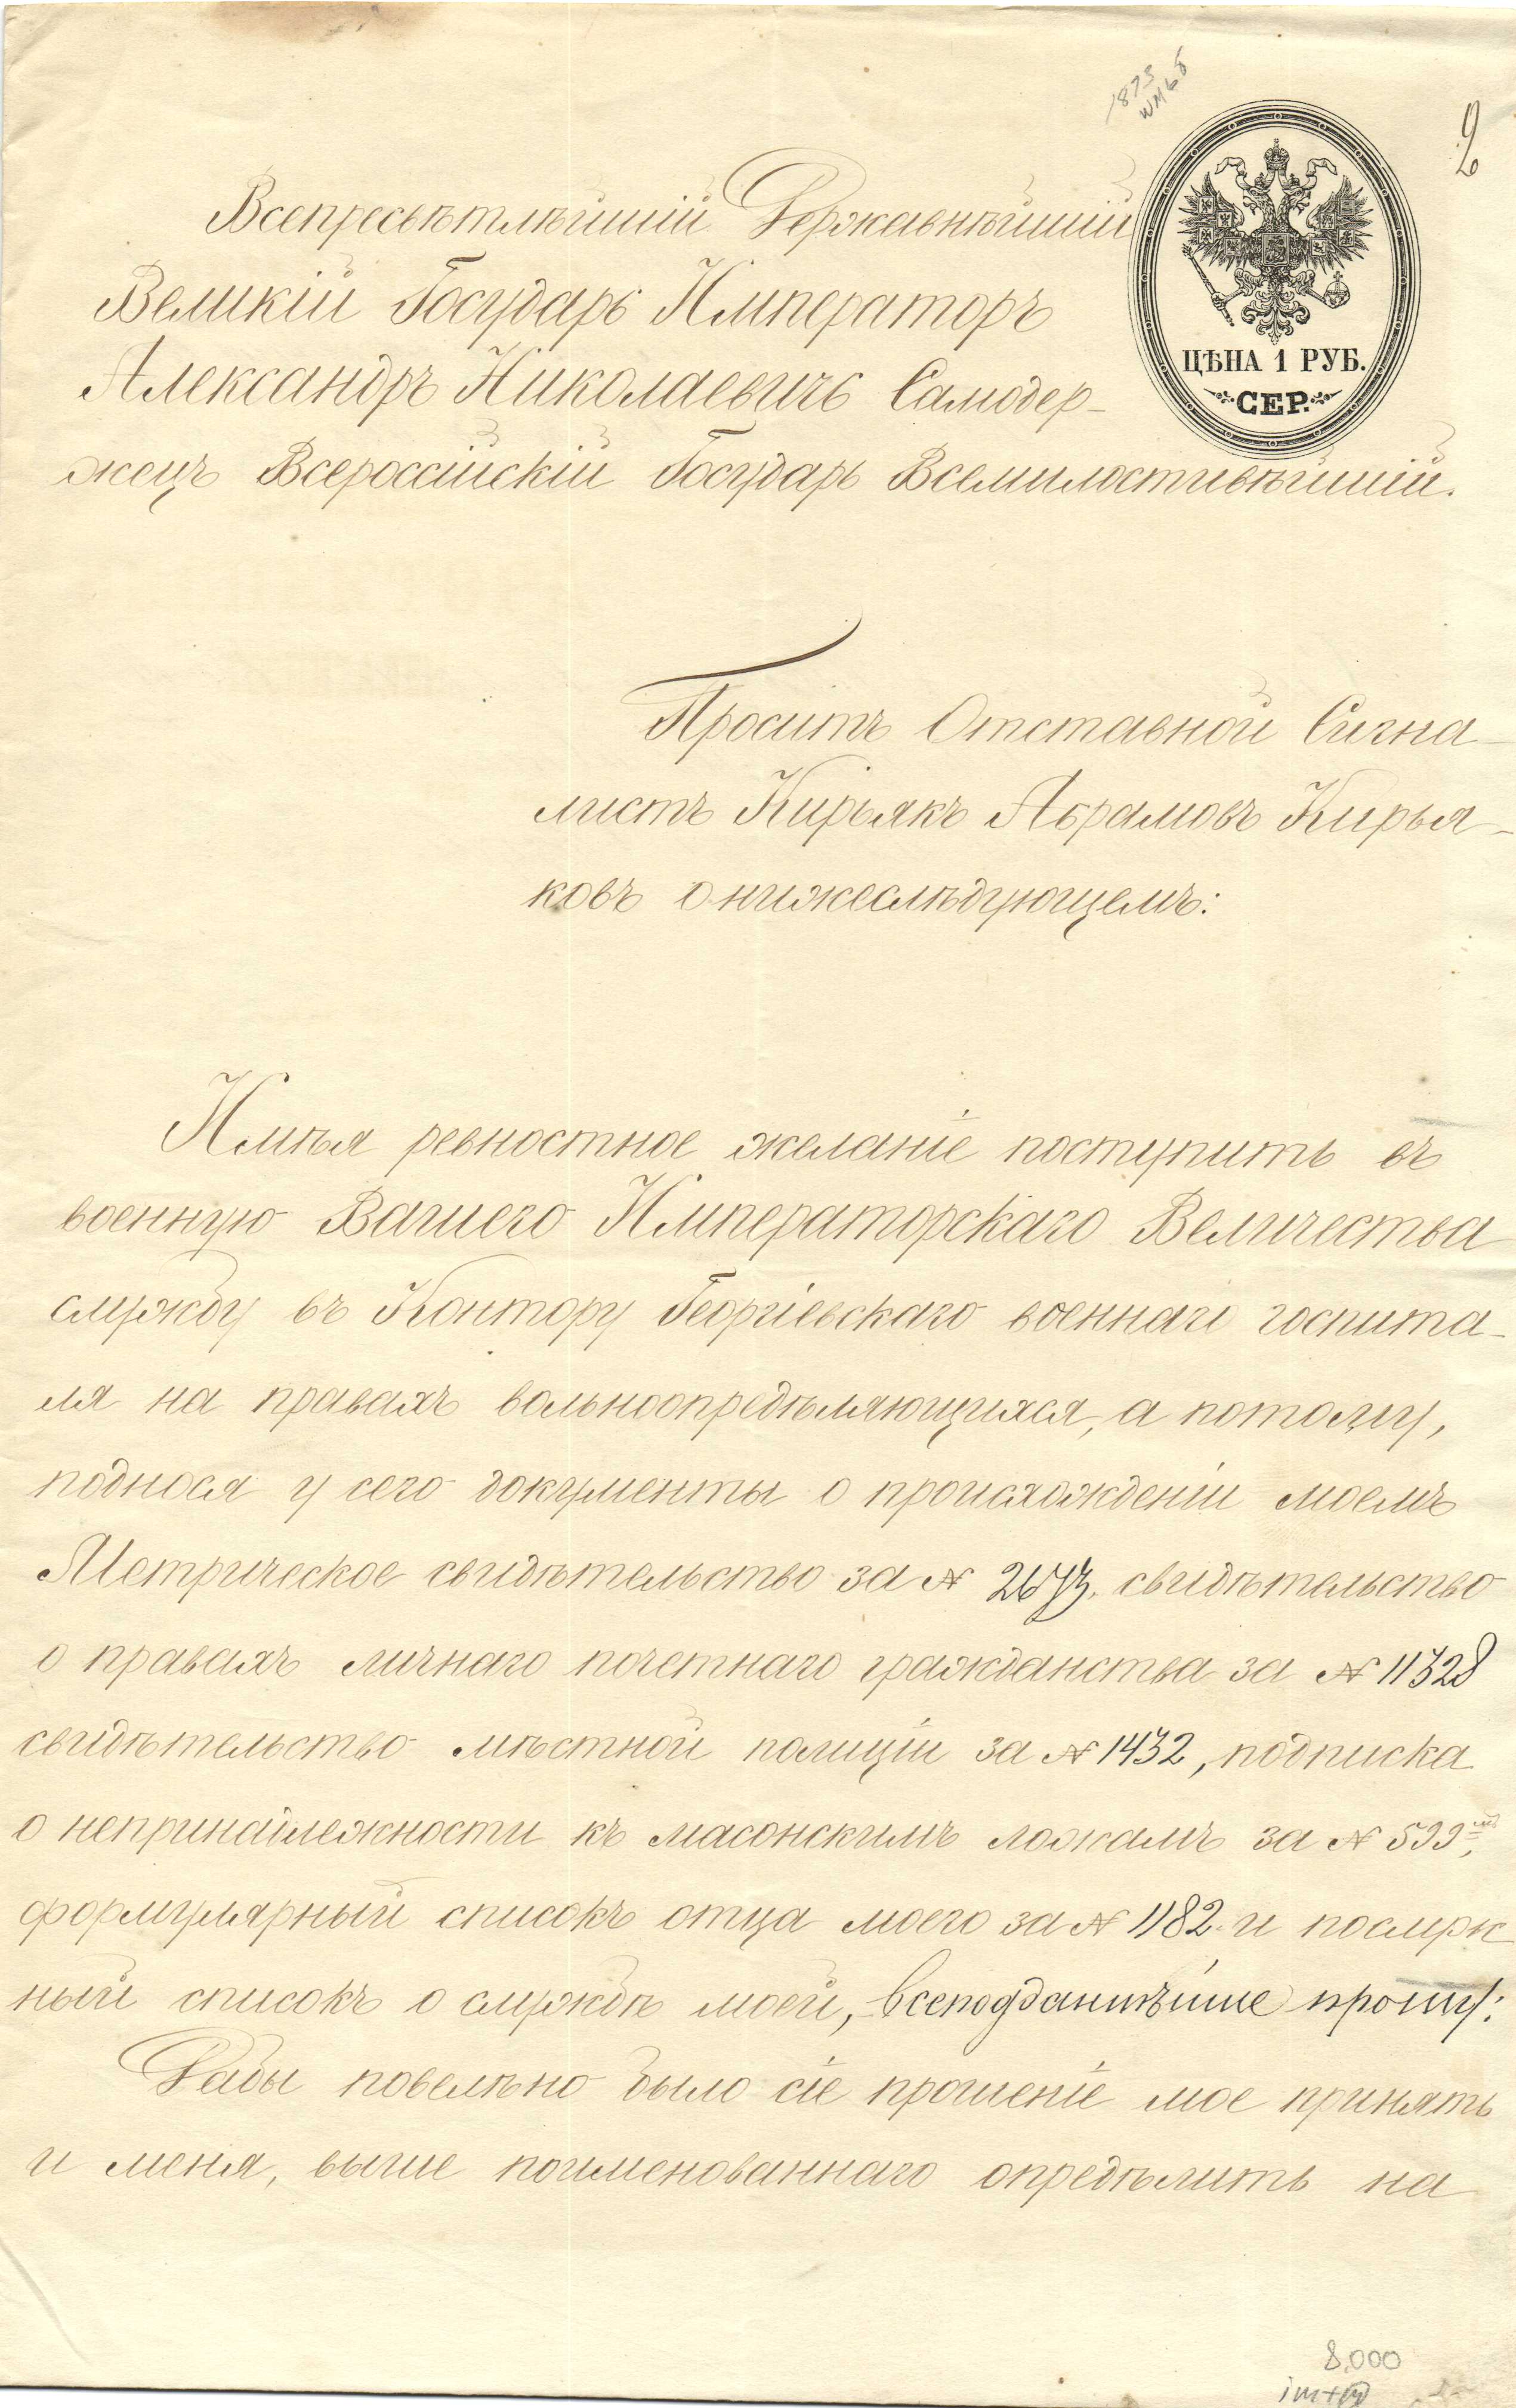 1873
2
Всепресвѣтлѣйшій Державнѣйшій
Великій Государь Императоръ
Александръ Николаевичъ Самодер-
жецъ Всероссійскій Государь Всемилостивѣйшій.
ЦѢНА 1 РУБ.
СЕР.
Проситъ Отставной Сигна-
листъ Кирьякъ Абрамовъ Кирья-
ковъ о нижеслѣдующемъ:
Имѣя ревностное желаніе поступить въ
военную Вашего Императорскаго Величества
службу въ Контору Георгіевскаго военнаго госпита-
ля на правахъ вольноопредѣляющихся, а потому,
поднося у сего документы о происхожденіи моемъ
Метрическое свидѣтельство за № свидѣтельство
о правахъ личнаго почетнаго гражданства за № 11328
свидѣтельство мѣстной полиціи за № 1432, подписка
о непринадлежности къ масонскимъ ложамъ за № 599,
формулярный списокъ отца моего за № 1182 и послуж
ный списокъ о службѣ моей, всеподданнѣйше прошу:
Дабы повелѣно было сіе прошеніе мое принять
и меня, выше поименованнаго опредѣлить на
8.000